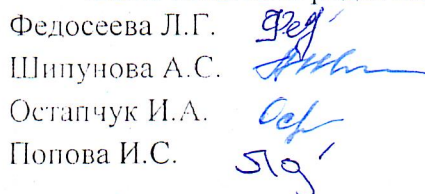 Федосеева Л.Г.
Шипунова А.С.
Остапчук И.А.
Попова И.С.